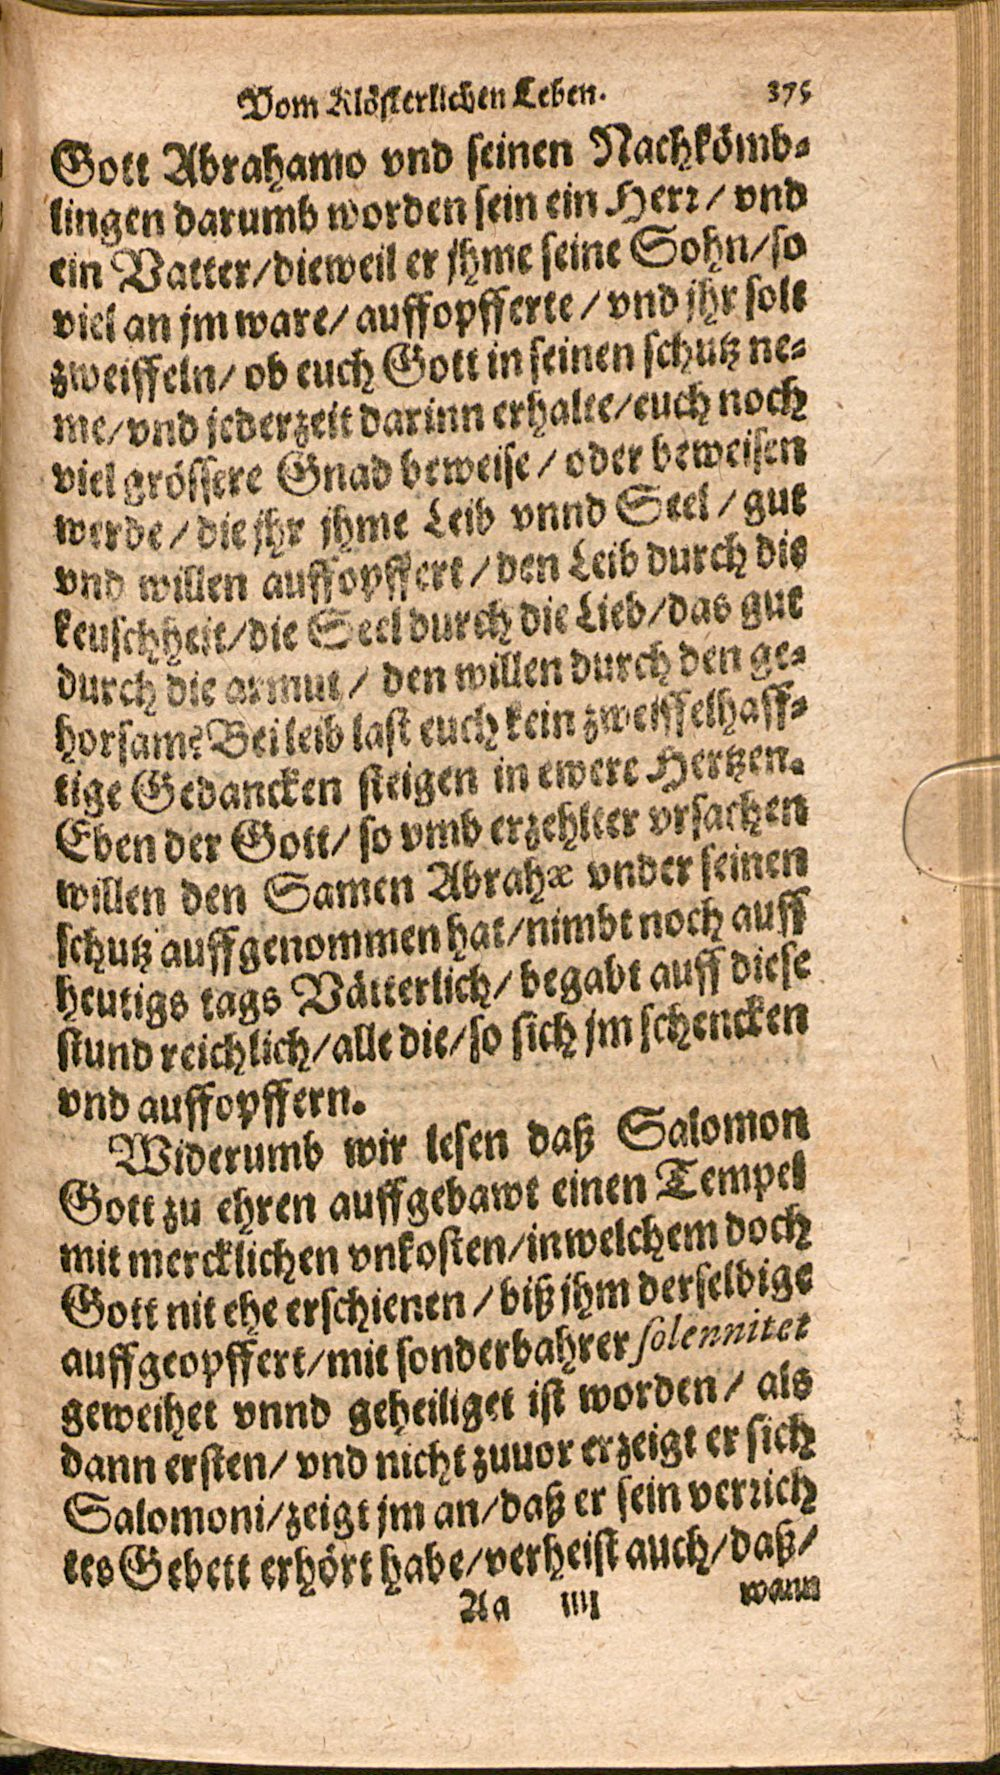 Vom Klösterlichen Leben. 375
Gott Abrahamo vnd seinen Nachkömb-
lingen darumb worden sein ein Herr/ vnd
ein Vatter/dieweil er jhme seine Sohn/so
viel an jm ware/ auffopfferte/ vnd jhr solt
zweiffeln/ ob euch Gott in seinen schutz ne-
me/vnd jederzeit darinn erhalte/euch noch
viel grössere Gnad beweise/ oder beweisen
werde/ die jhr jhme Leib vnnd Seel/ gut
vnd willen auffopffert/ den Leib durch dis
keuschheit/die Seel durch die Lieb/das gut
durch die armut/ den willen durch den ge-
horsam? Bei leib last euch kein zweiffelhaff-
tige Gedancken steigen in ewere Hertzen.
Eben der Gott/ so vmb erzehlter vrsachen
willen den Samen Abrahæ vnder seinen
schutz auffgenommen hat/nimbt noch auff
heutigs tags Vätterlich/ begabt auff diese
stund reichlich/alle die/so sich jm schencken
vnd auffopffern.
Widerumb wir lesen daß Salomon
Gott zu ehren auffgebawt einen Tempel
mit mercklichen vnkosten/in welchem doch
Gott nit ehe erschienen/ biß jhm derselbige
auffgeopffert/mit sonderbahrer solennitet
geweihet vnnd geheiliget ist worden/ als
dann ersten/ vnd nicht zuuor erzeigt er sich
Salomoni/zeigt jm an/daß er sein verrich
tes Gebett erhört habe/verheist auch/daß/
Aa iiij wann